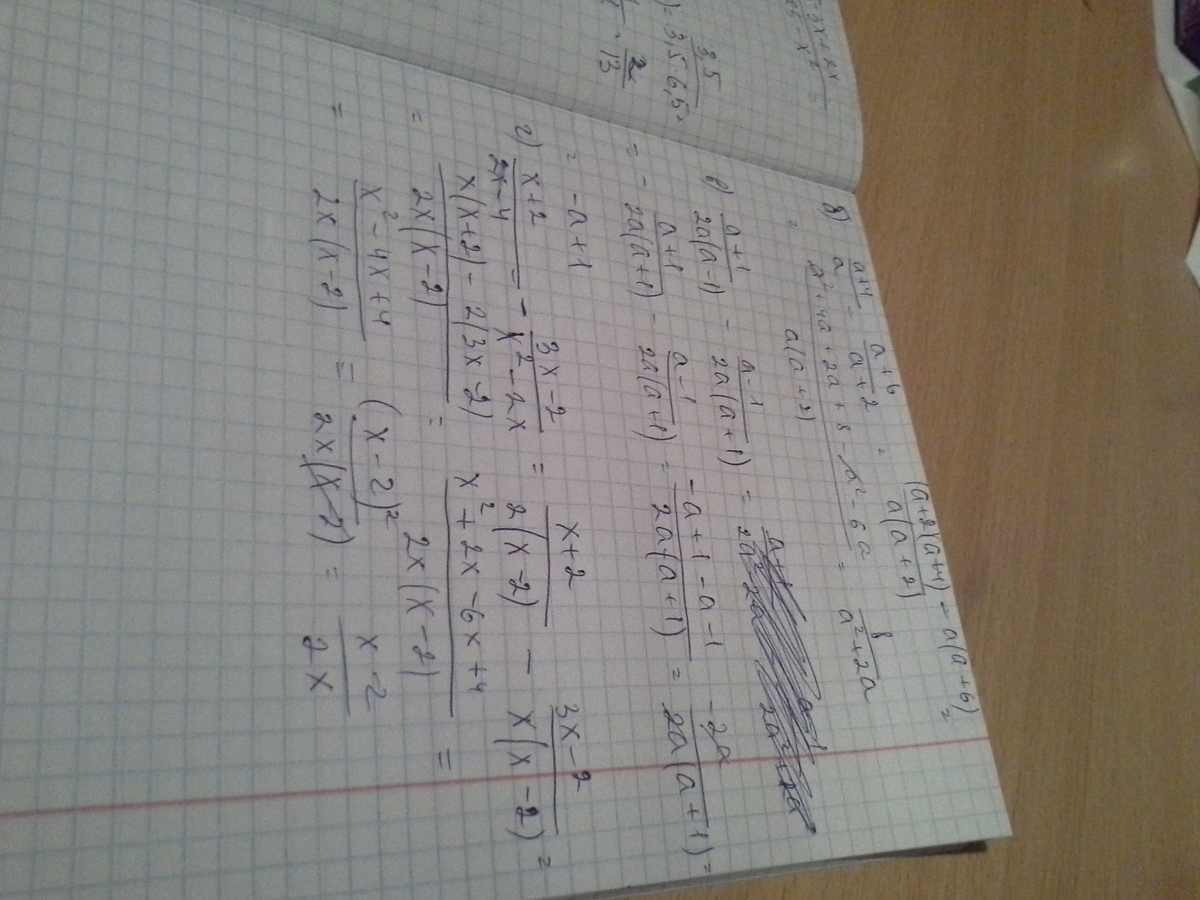 3x+2x
=
3,5
)= 3,5·6,5 =
2
13
б) (a+4)/a - (a+6)/(a+2) = ((a+2)(a+4) - a(a+6))/(a(a+2)) =
= (a²+4a+2a+8-a²-6a)/(a(a+2)) = 8/(a²+2a)
в) (a+1)/(2a(a-1)) - (a-1)/(2a(a+1)) =
= - (a+1)/(2a(a+1)) - (a-1)/(2a(a+1)) = (-a+1-a-1)/(2a(a+1)) = (-2a)/(2a(a+1)) =
= -a+1
г) (x+2)/(2x-4) - (3x-2)/(x²-2x) = (x+2)/(2(x-2)) - (3x-2)/(x(x-2)) =
= (x(x+2)-2(3x-2))/(2x(x-2)) = (x²+2x-6x+4)/(2x(x-2)) =
= (x²-4x+4)/(2x(x-2)) = (x-2)²/(2x(x-2)) = (x-2)/(2x)